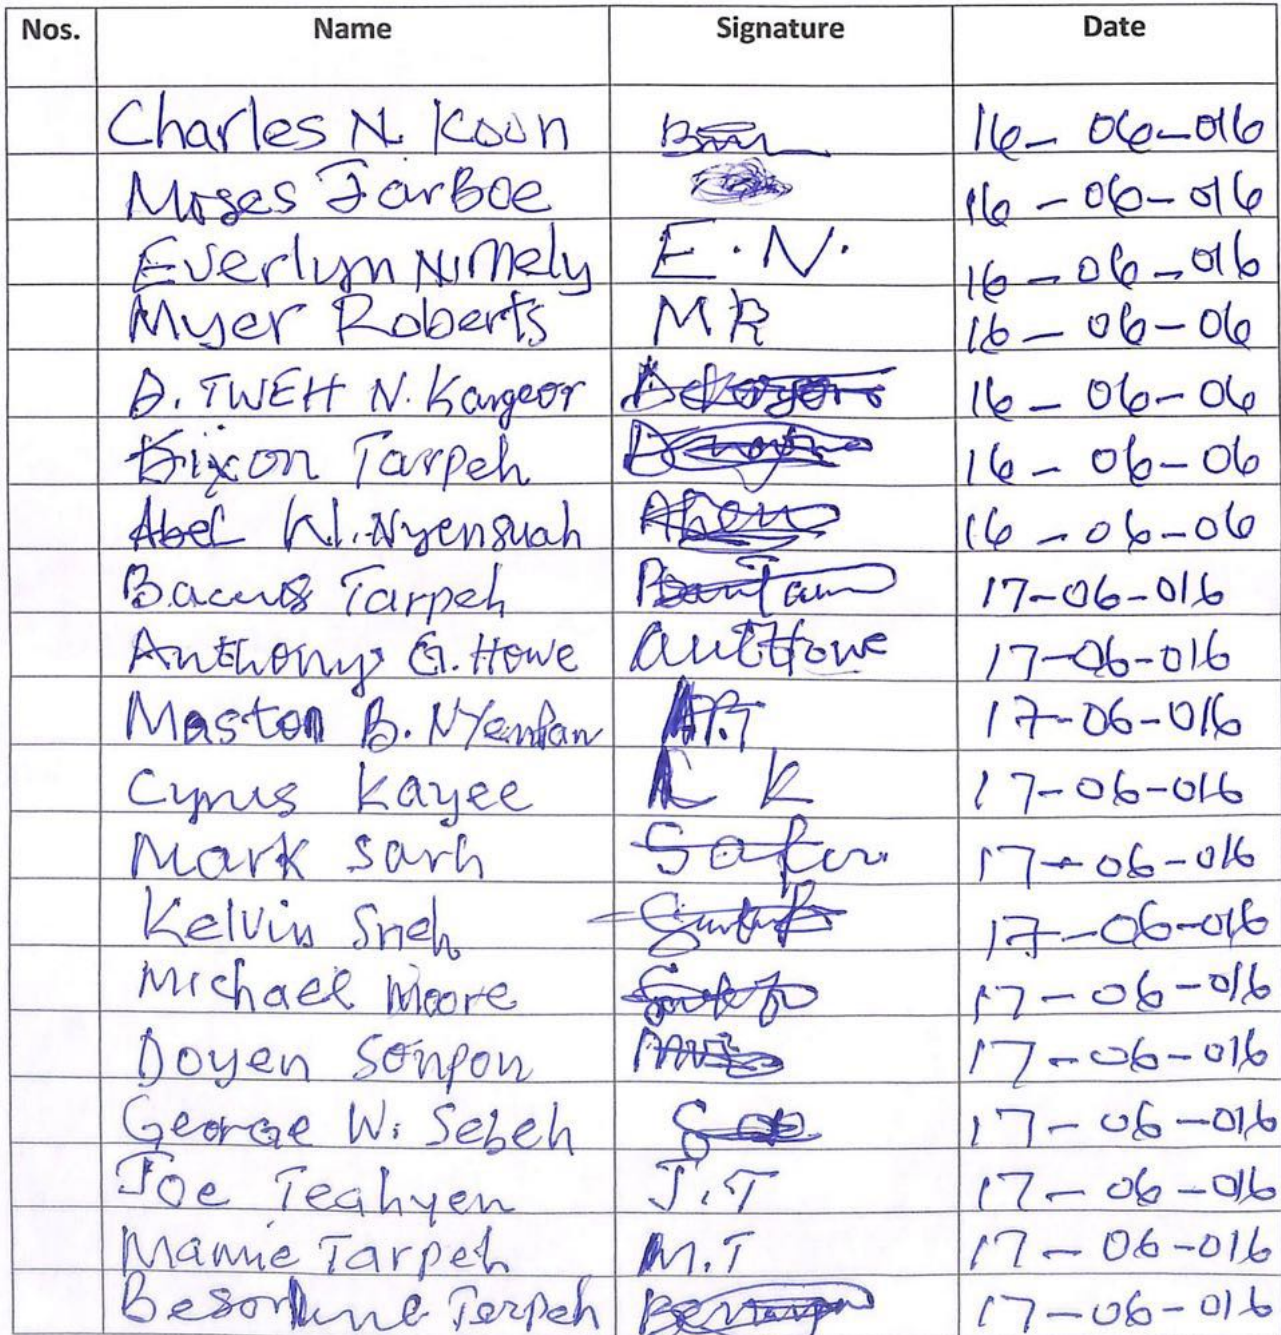 Nos. Name Signature Date
Charles N. Koon 16-06-016
Moses JarBoe 16-06-016
Everlyn Nimely E.N. 16-06-016
Myer Roberts MR 16-06-06
D. TWEH N. Kangeor 16-06-06
Dixon Tarpeh 16-06-06
Abel W. Nyensuah 16-06-06
Bacus Tarpeh 17-06-016
Anthony G. Howe 17-06-016
Maston B. NYenfan 17-06-016
Cyrus Kayee C K 17-06-016
Mark Sarh 17-06-016
Kelvin Sneh 17-06-016
Michael Moore 17-06-016
Doyen Sonpon 17-06-016
George W. Sebeh 17-06-016
Joe Teahyen J.T 17-06-016
Mamie Tarpeh M.T 17-06-016
Terpeh 17-06-016